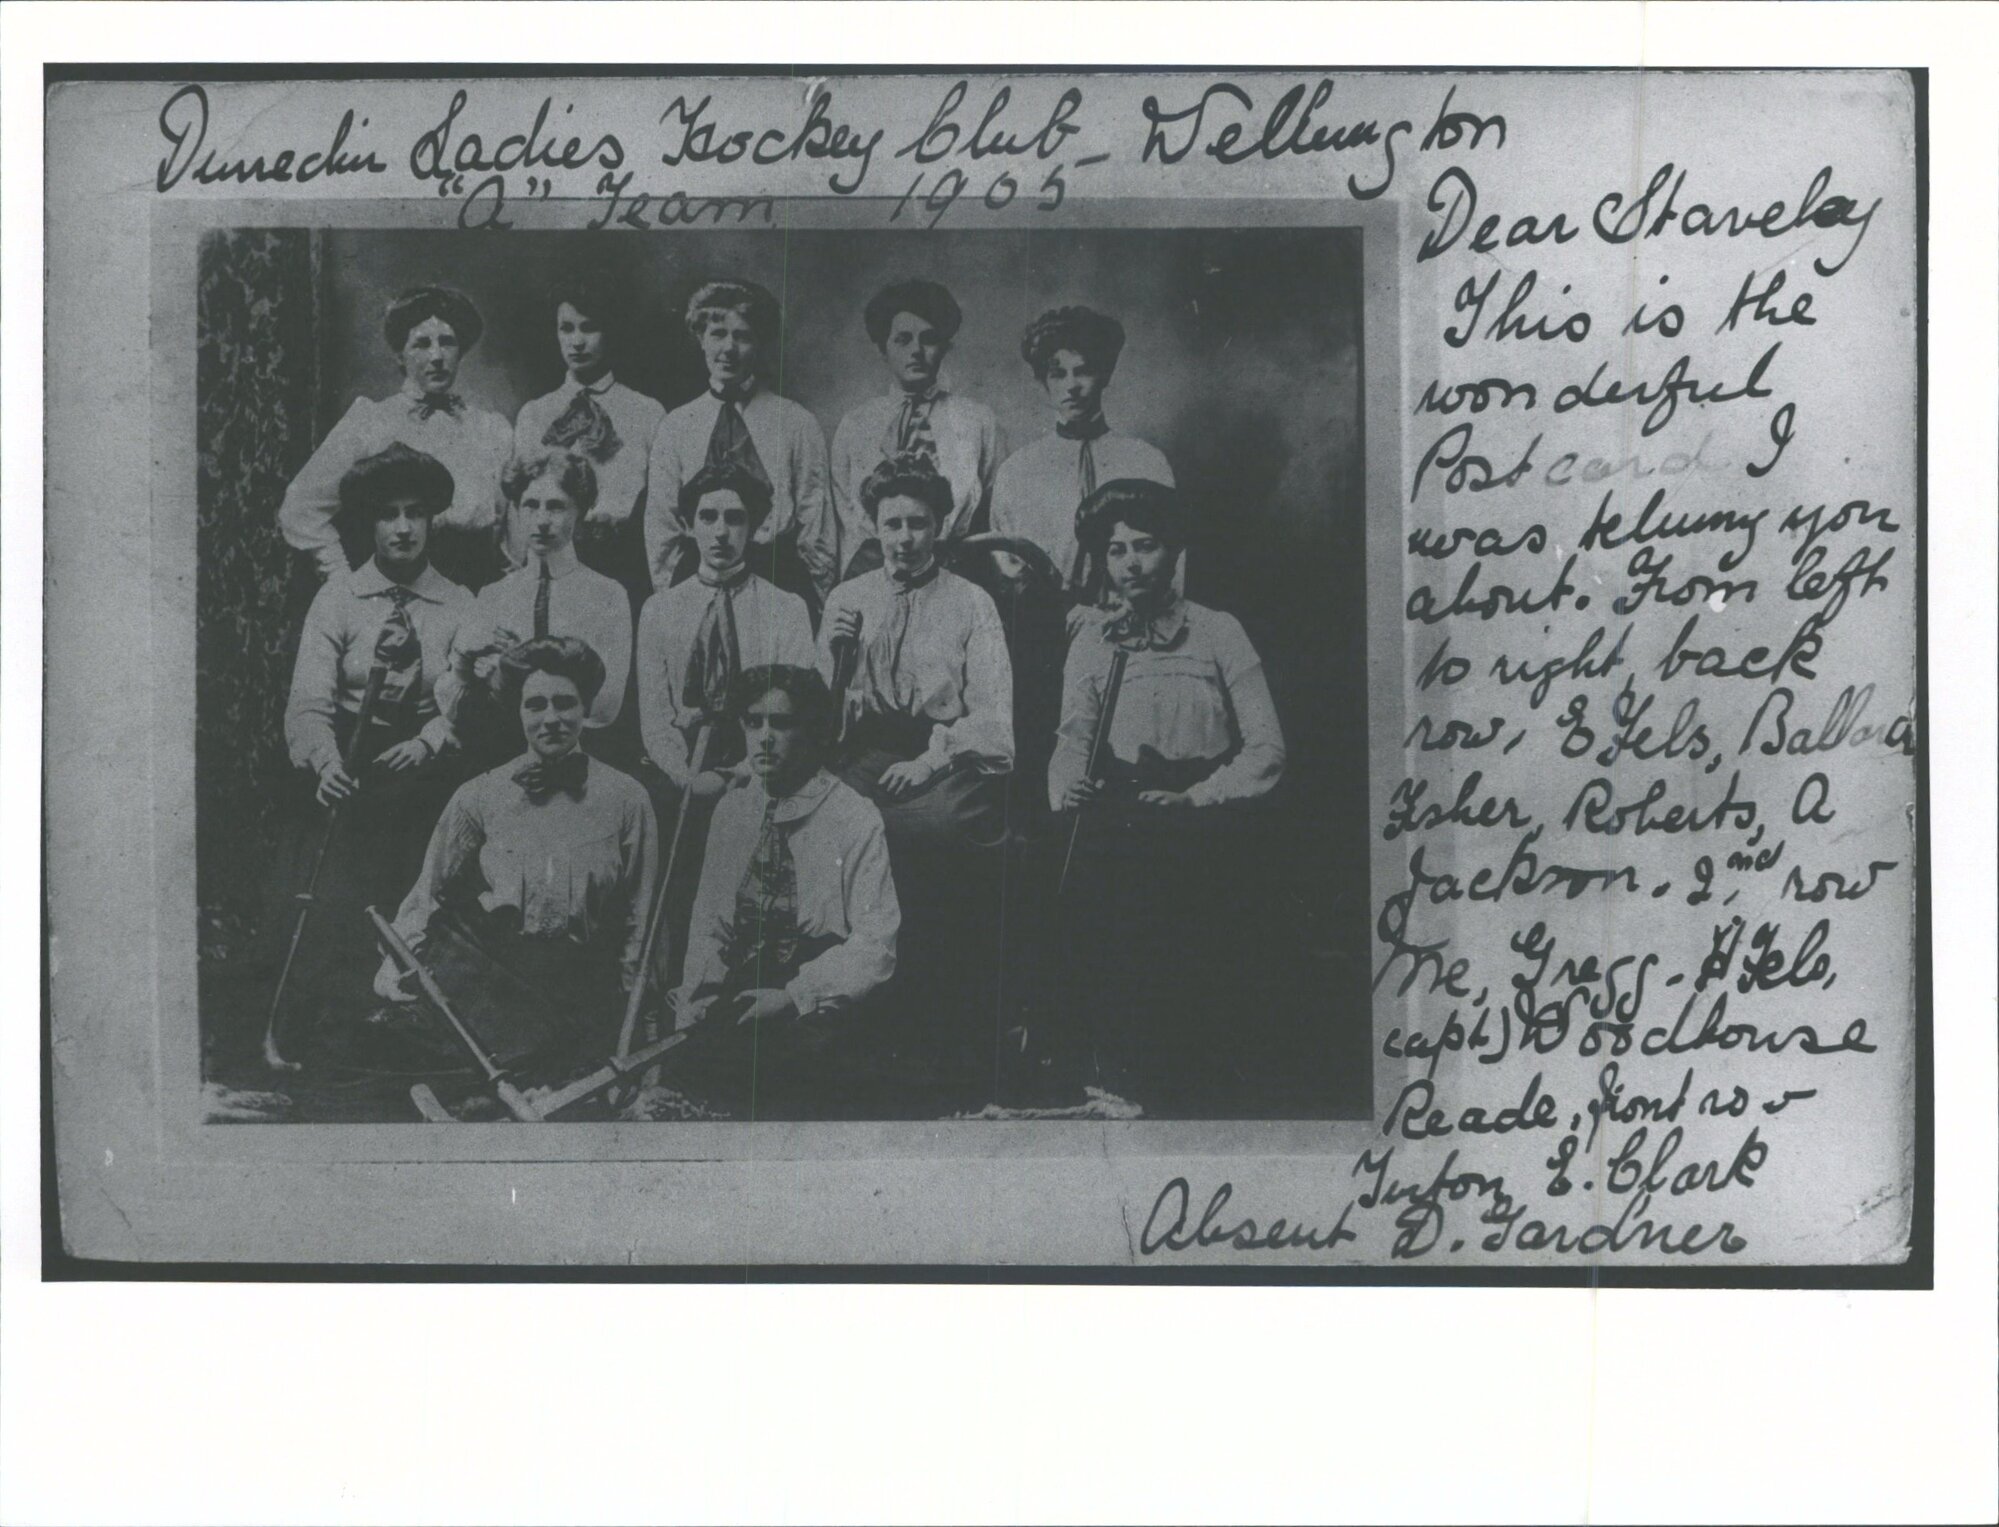 Dunedin Ladies Hockey Club - Wellington
"A" Team 1905
Dear Staveley
This is the
wonderful
Postcard I
was telling you
about. From left
to right, back
row, E Fels, Ballard
Fisher, Roberts, A
Jackson. 2nd row
Me, Gregg - H Fels,
capt) Woodhouse
Reade, front row
Turton E. Clark
Absent D. Gardner